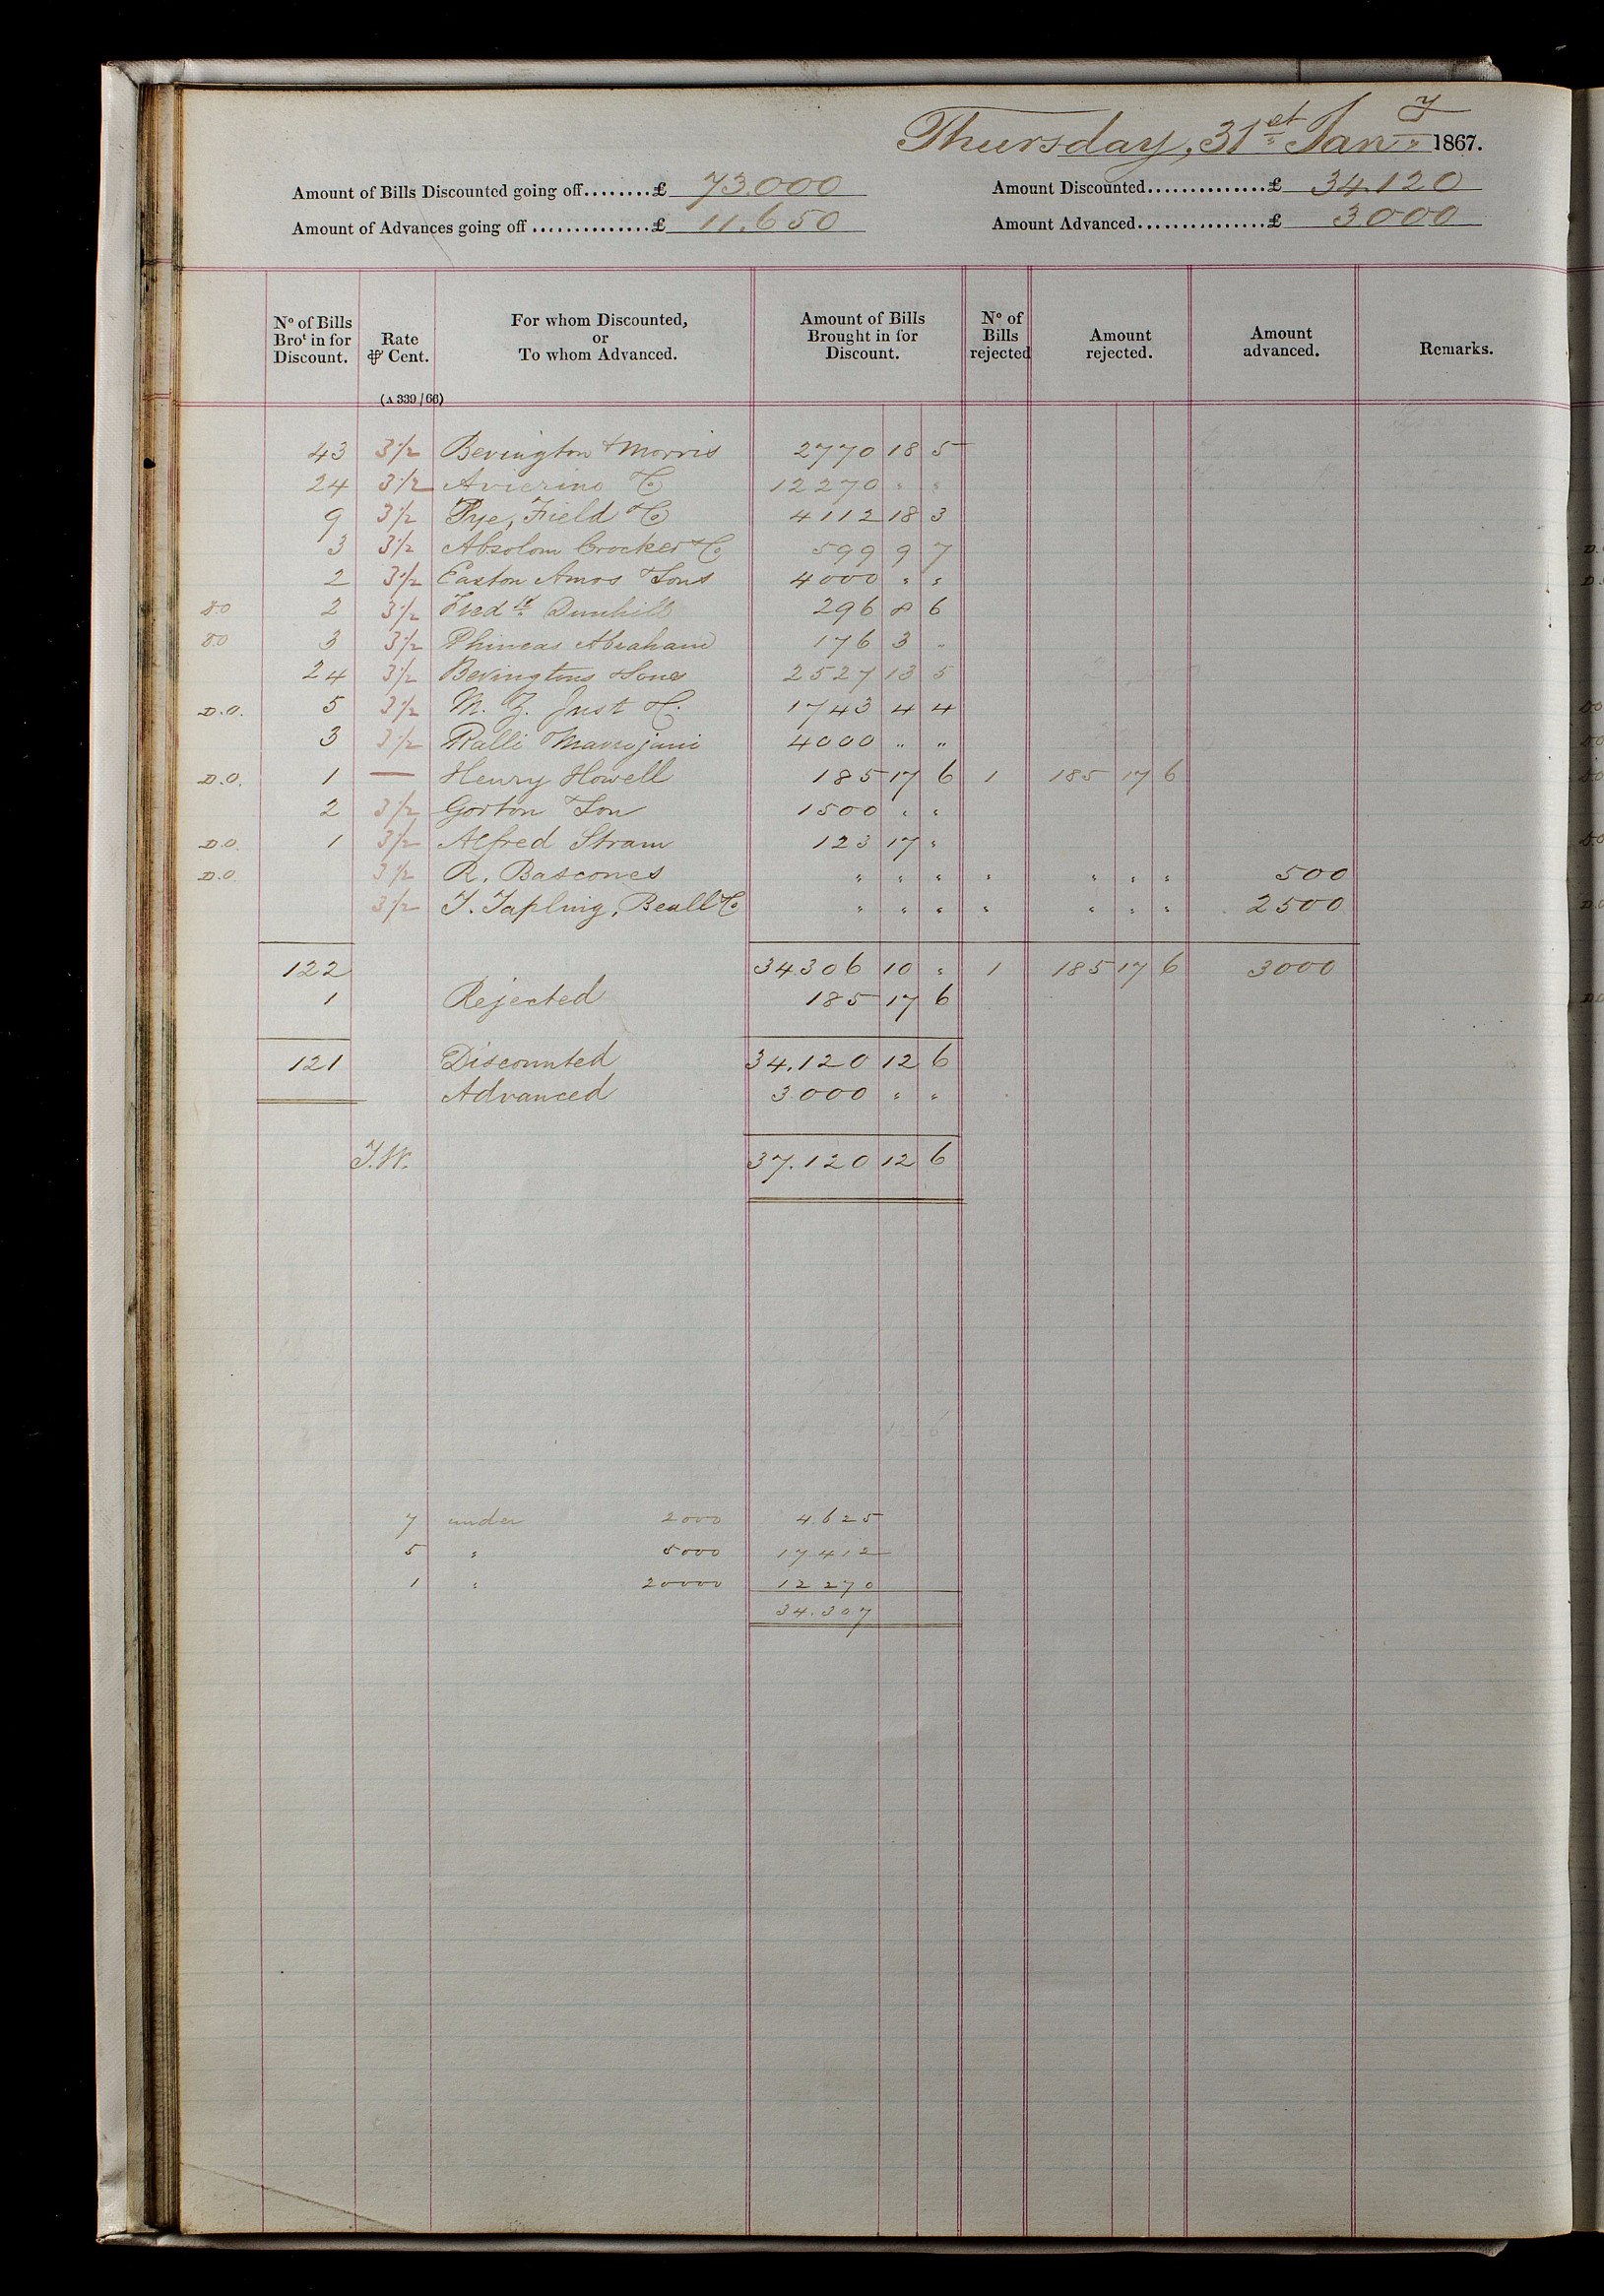 Thursday, 31st Jany 1867.
Amount of Bills Discounted going off........£ 73.000 Amount Discounted..............£ 34.120
Amount of Advances going off ..............£ 11.650 Amount Advanced...............£ 3000
No of Bills Brot in for Discount. Rate ⅌ Cent. For whom Discounted, or To whom Advanced. Amount of Bills Brought in for Discount. No of Bills rejected Amount rejected. Amount advanced. Remarks.
(A 339/66)
43 3½ Bevington & Morris 2770 18 5
24 3½ Avierino & Co 12270 " "
9 3½ Pye, Field & Co 4112 18 3
3 3½ Absolom Crocker & Co 599 9 7
2 3½ Easton Amos & Sons 4000 " "
DO 2 3½ Fredk Dunhill 296 8 6
DO 3 3½ Phineas Abraham 176 3 "
24 3½ Bevingtons & Sons 2527 13 5
D.O. 5 3½ M. Z. Just & Co. 1743 4 4
3 3½ Ralli & Mavrojani 4000 " "
D.O. 1 — Henry Howell 185 17 6 1 185 17 6
2 3½ Gorton & Son 1500 " "
D.O. 1 3½ Alfred Stram 123 17 "
D.O. 3½ R. Bascones " " " " " " " 500
3½ T. Tapling, Beall & Co " " " " " " " 2500
122 34.306 10 " 1 185 17 6 3000
1 Rejected 185 17 6
121 Discounted 34.120 12 6
Advanced 3.000 " "
T.W. 37.120 12 6
7 under 2000 4.625
5 " 5000 17.412
1 " 20000 12 270
34.307